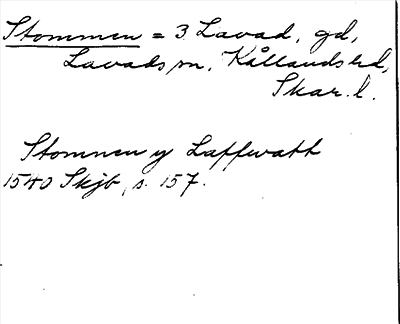 Stommen = 3 Lavad, gd,
Lavads sn, Kållands hd,
Skar. l.
Stomnen y Laffwatt
1540 Skjb, s. 157.